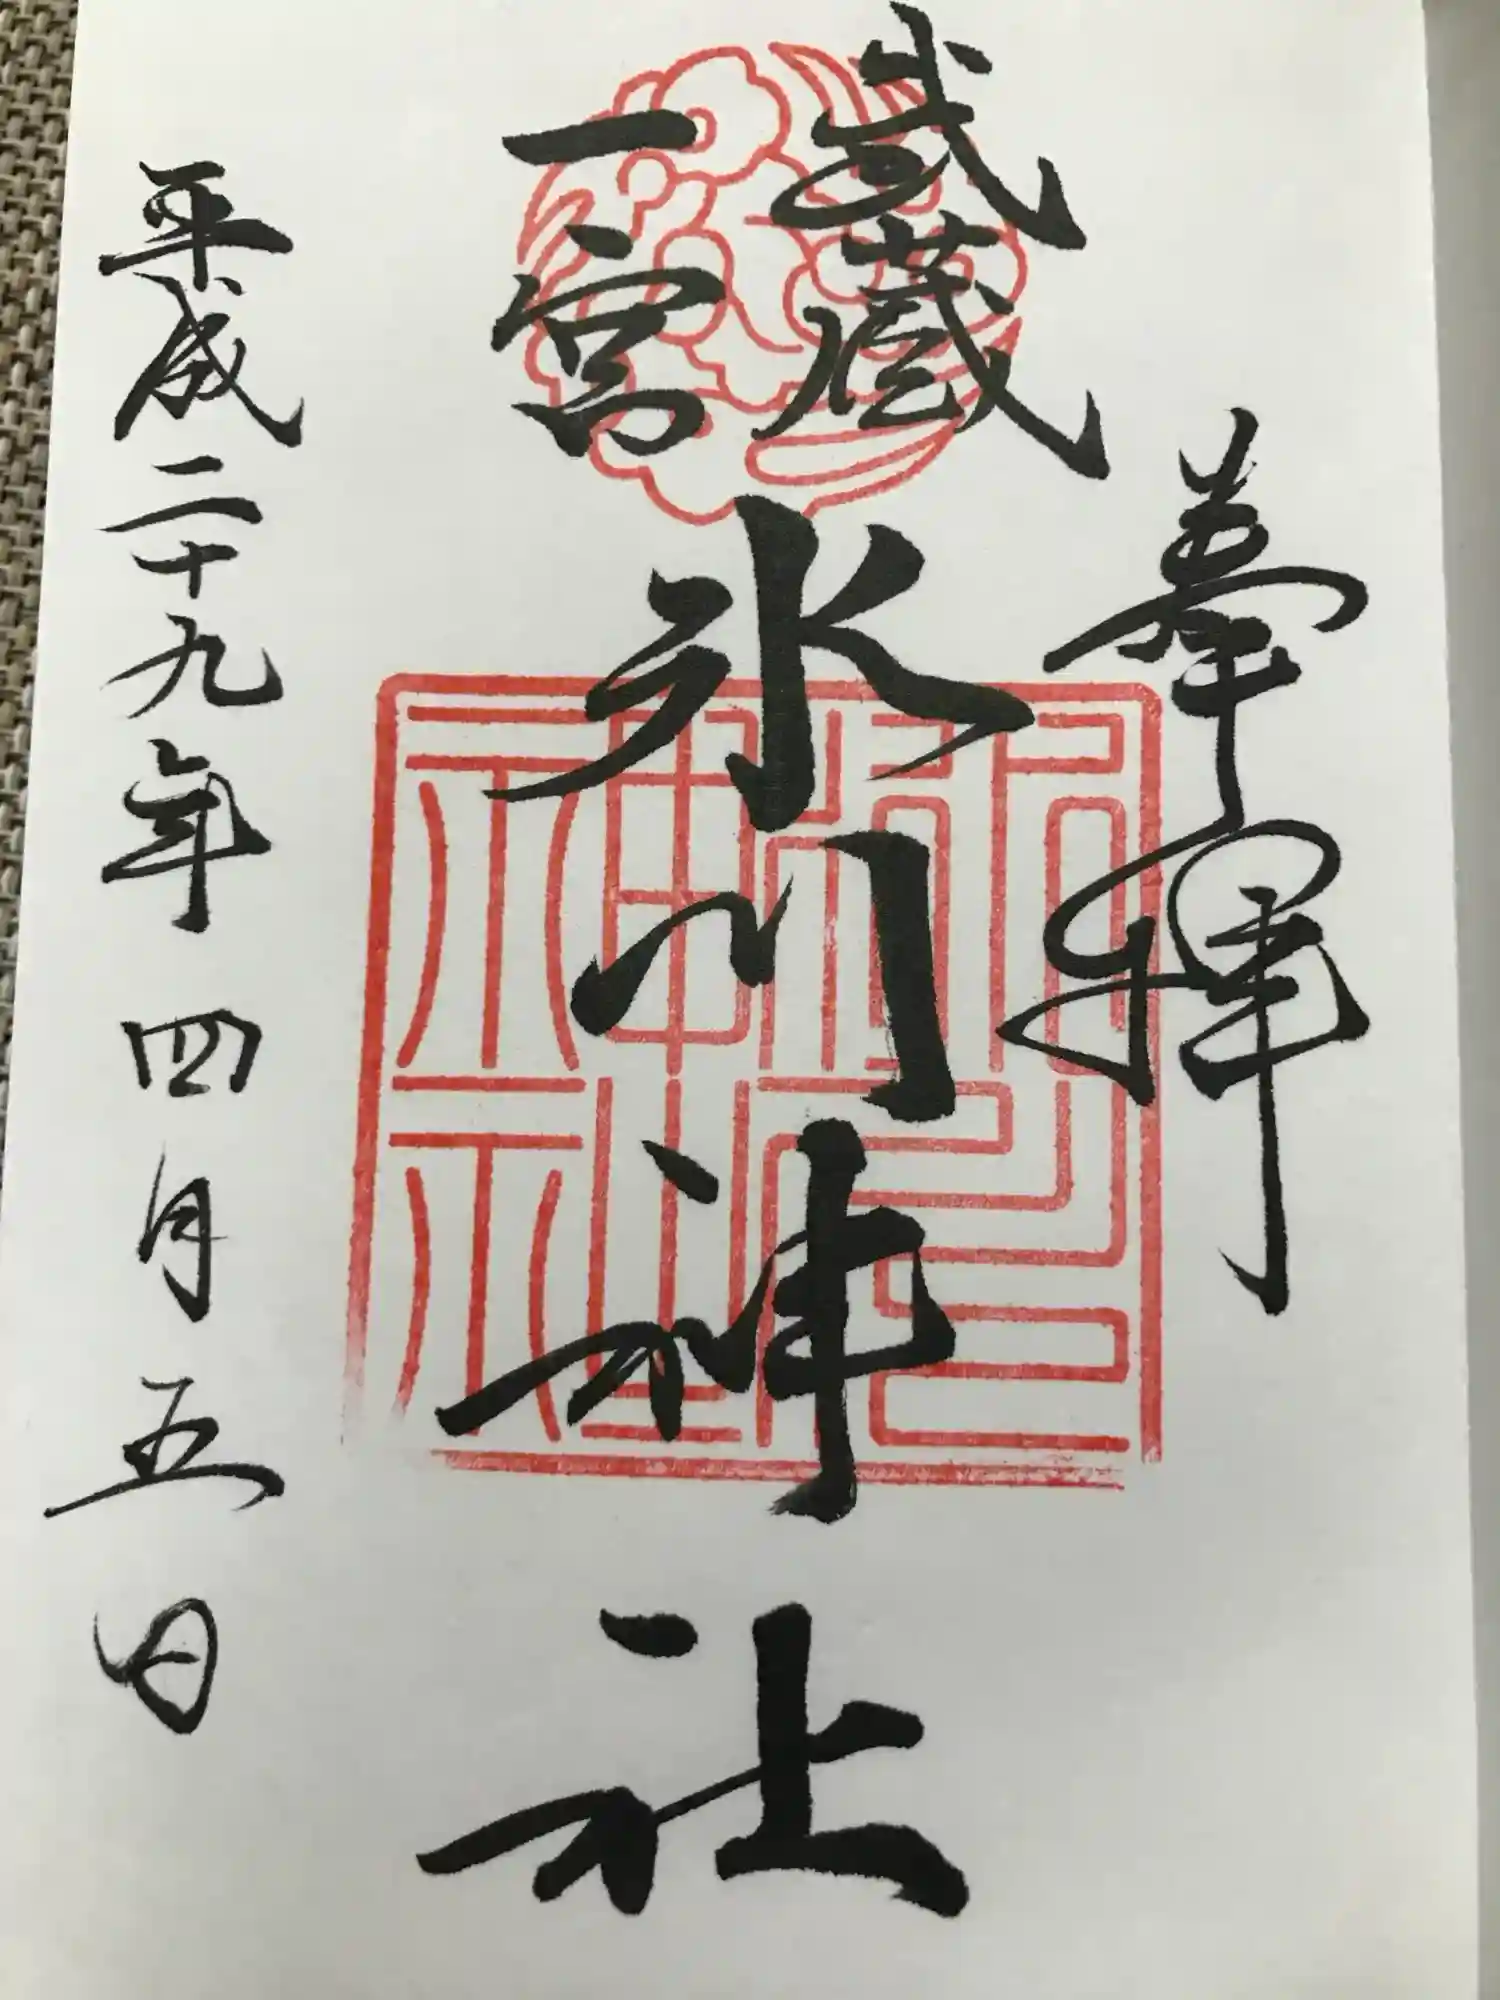 奉拝
武蔵
一宮
氷川神社
平成二十九年四月五日